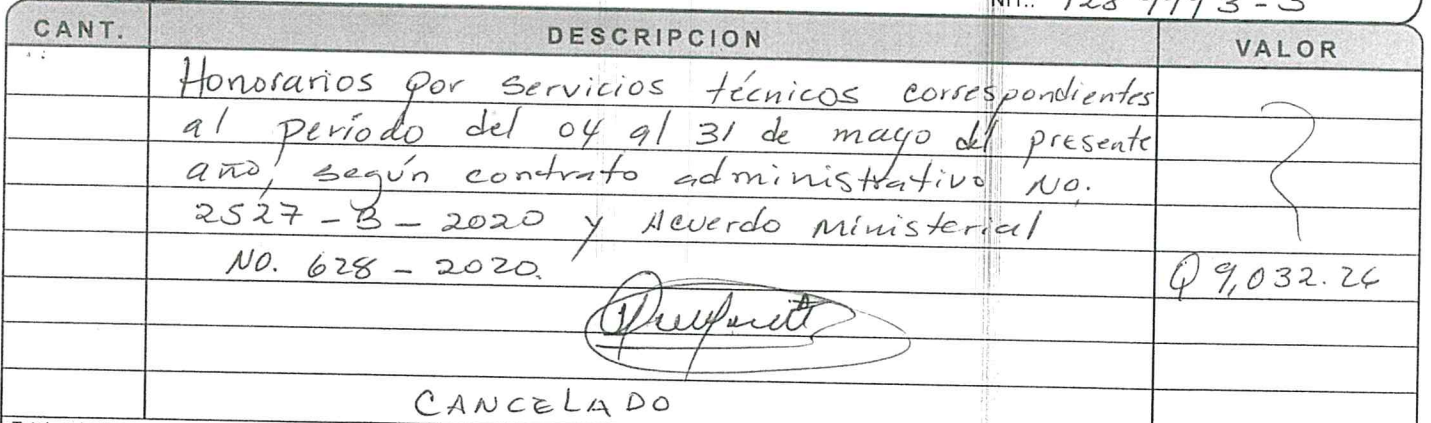 NIT.:
CANT. DESCRIPCION VALOR
Honorarios por servicios técnicos correspondientes
al período del 04 al 31 de mayo del presente
año, según contrato administrativo No.
2527-B-2020 y Acuerdo Ministerial
No. 628-2020. Q 9,032.26
CANCELADO